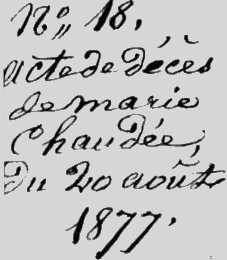 N°,, 18,
acte de décès
de marie
Chaudée,
Du 20 août
1877.